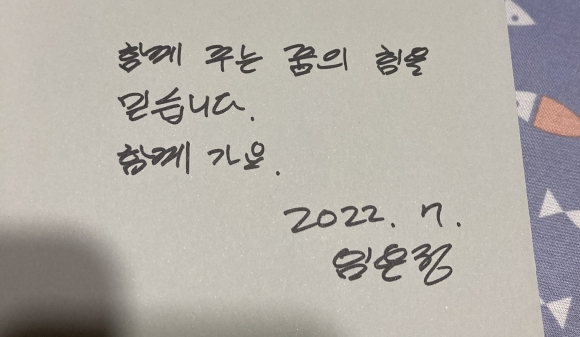 함께 꾸는 꿈의 힘을
믿습니다.
함께 가요.
2022. 7.
임은정